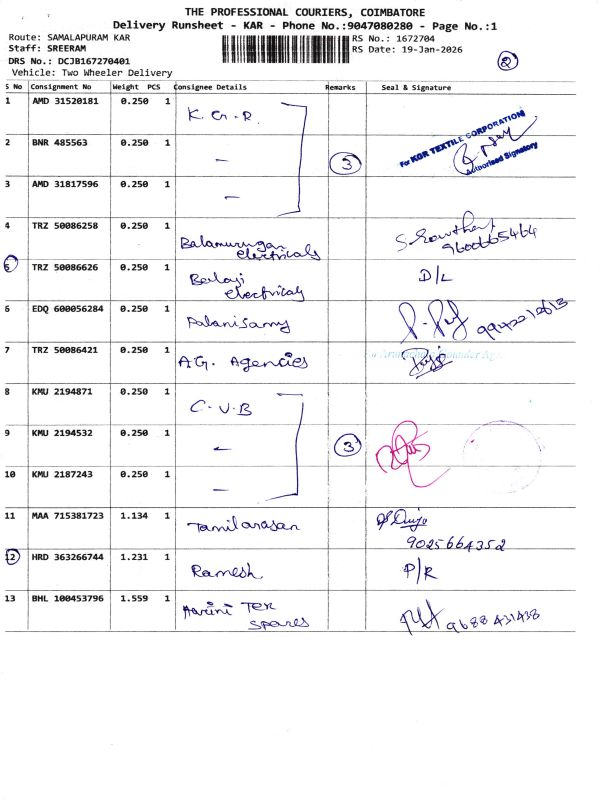 THE PROFESSIONAL COURIERS, COIMBATORE
Delivery Runsheet - KAR - Phone No.:9047080280 - Page No.:1
Route: SAMALAPURAM KAR RS No.: 1672704
Staff: SREERAM RS Date: 19-Jan-2026
DRS No.: DCJB167270401
Vehicle: Two Wheeler Delivery
2
S No Consignment No Weight PCS Consignee Details Remarks Seal & Signature
1 AMD 31520181 0.250 1 K.G.R.
2 BNR 485563 0.250 1 — 3 For KGR TEXTILE CORPORATION
Authorised Signatory
3 AMD 31817596 0.250 1 —
4 TRZ 50086258 0.250 1 Balamurugan electricals 9600665464
5 TRZ 50086626 0.250 1 Balaji electricals D/L
6 EDQ 600056284 0.250 1 Palanisamy
7 TRZ 50086421 0.250 1 A.G. Agencies
8 KMU 2194871 0.250 1 C.V.B
9 KMU 2194532 0.250 1 — 3
10 KMU 2187243 0.250 1 —
11 MAA 715381723 1.134 1 Tamilarasan 9025664352
12 HRD 363266744 1.231 1 Ramesh P/R
13 BHL 100453796 1.559 1 Aarini Tex Spares 9688431438